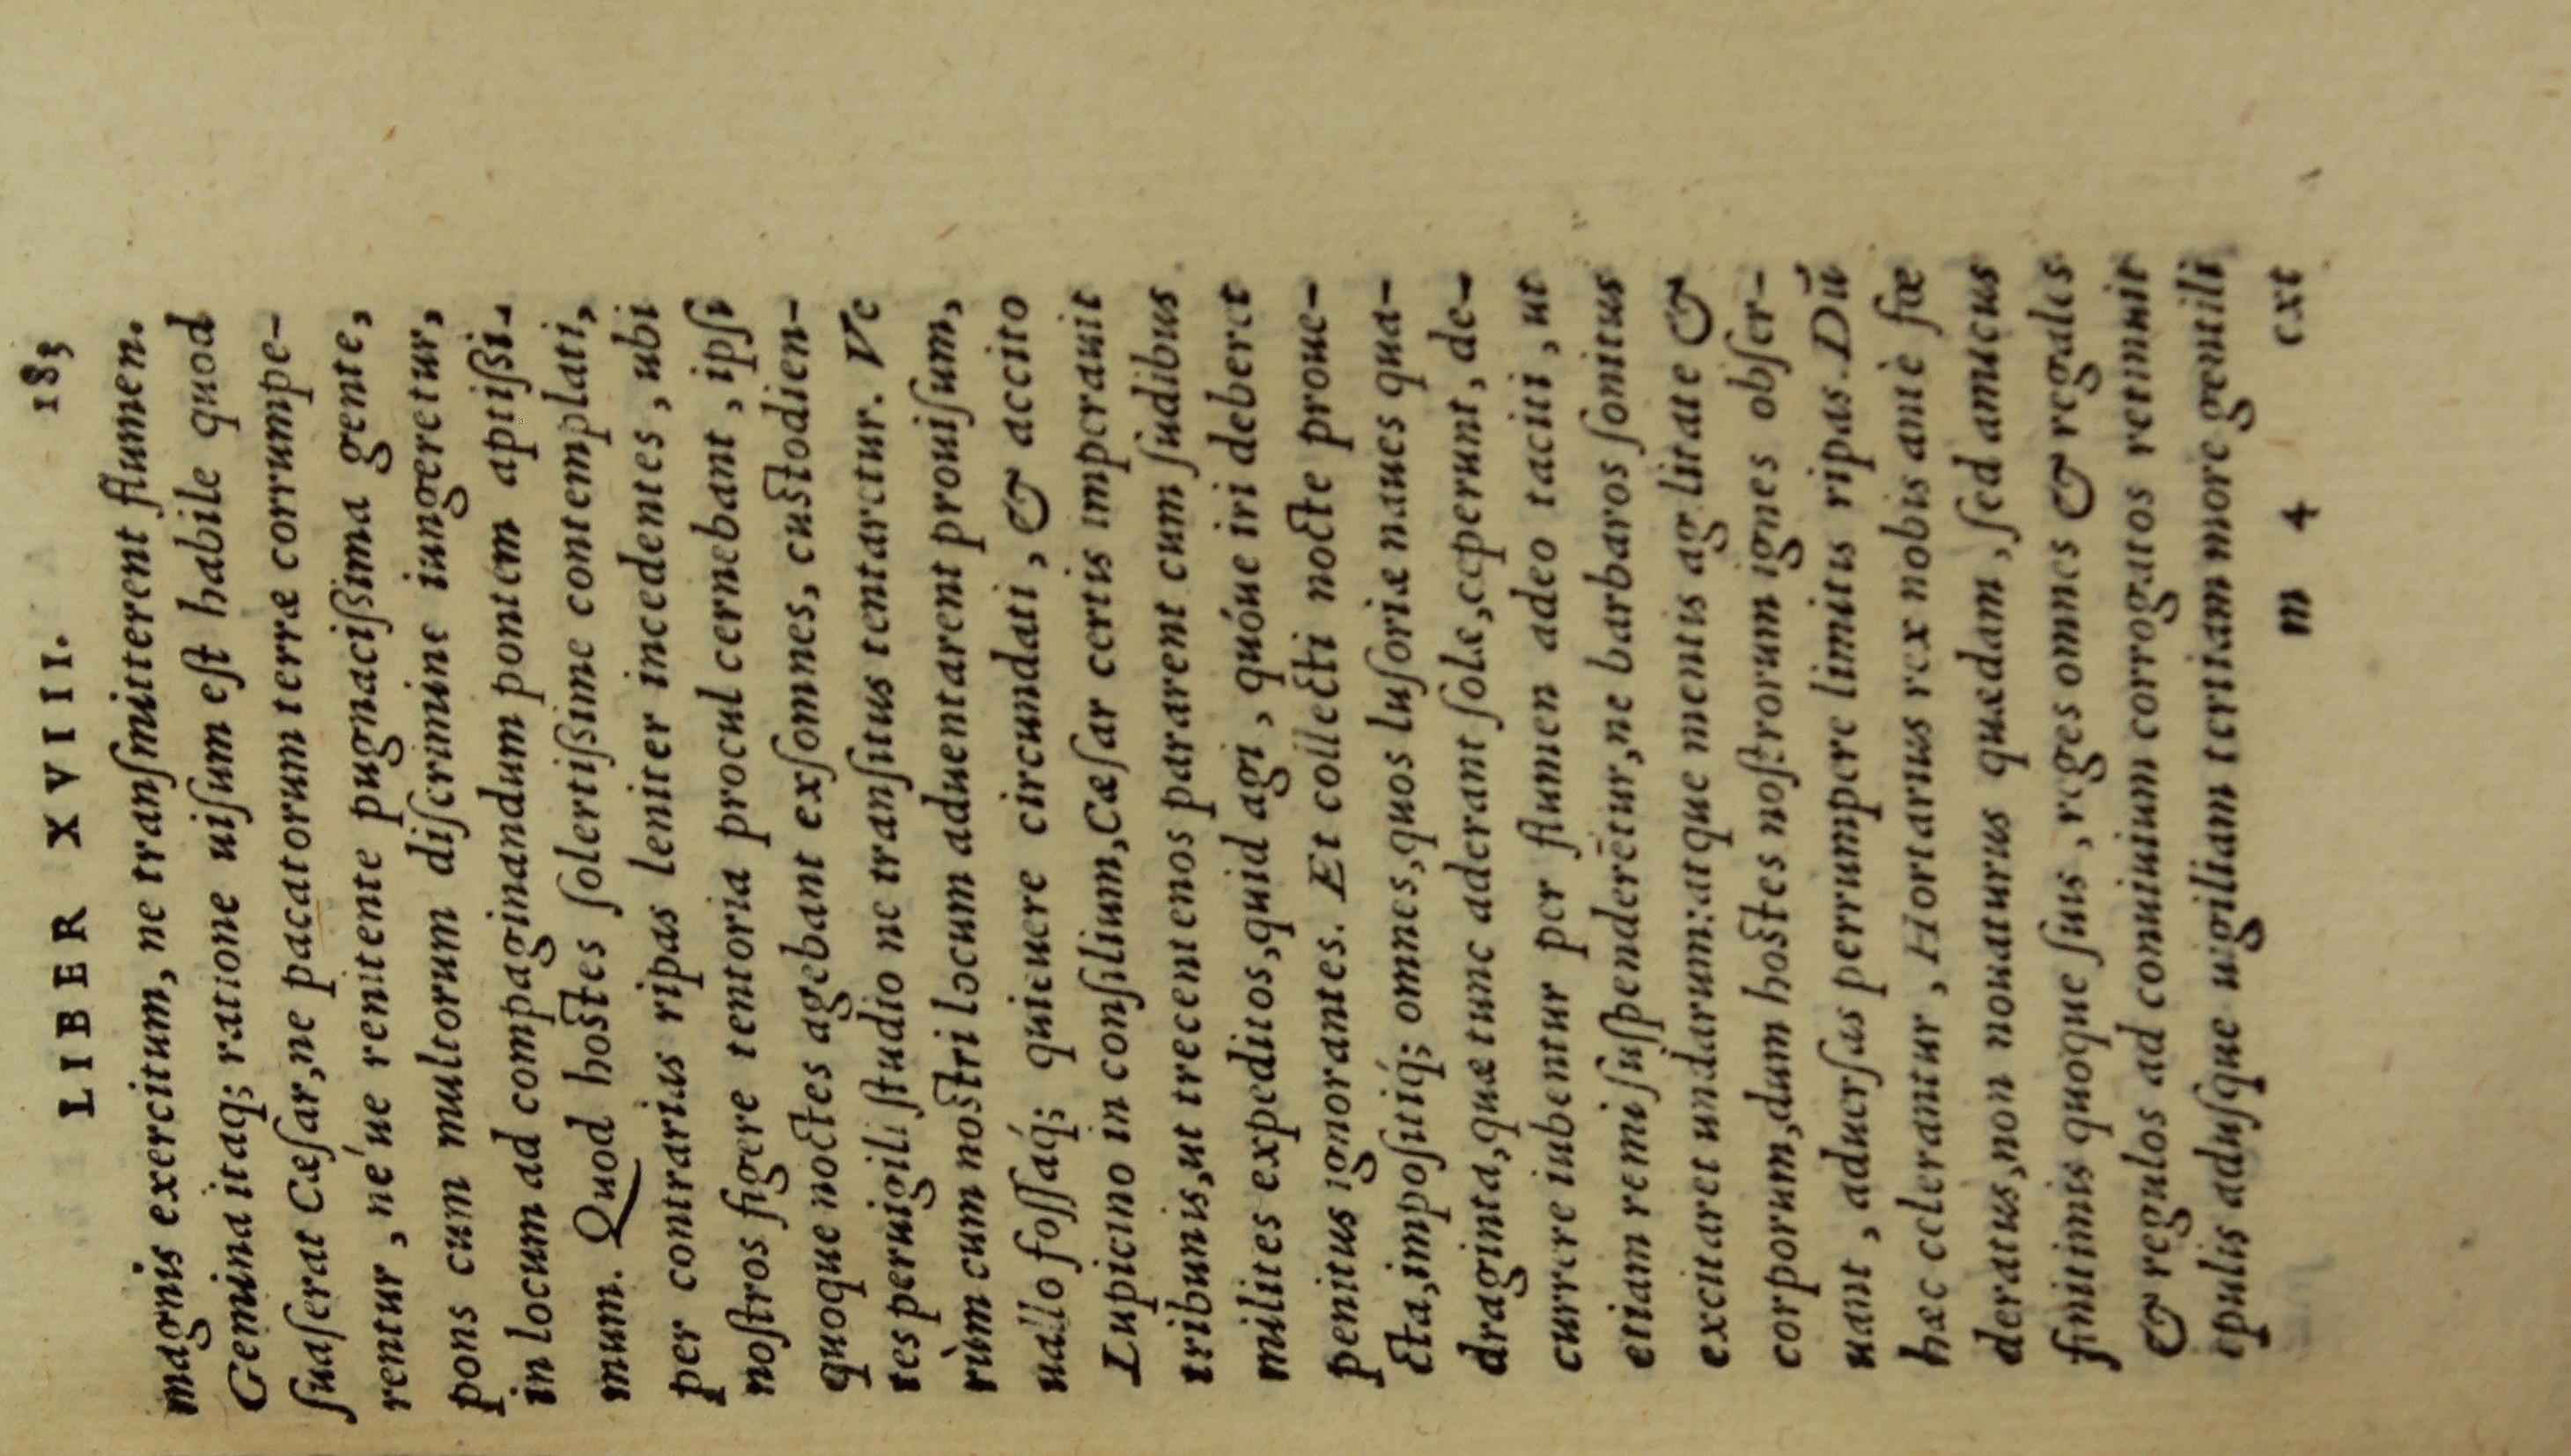 LIBER XVIII. 183
magnis exercitum, ne tranſmitterent flumen.
Gemina itaq; ratione uiſum eſt habile quod
ſuaſerat Cæſar,ne pacatorum terræ corrumpe-
rentur, né ue renitente pugnacißima gente,
pons cum multorum diſcrimine iungeretur,
in locum ad compaginandum pontem aptißi-
mum. Quod hostes ſolertiſsime contemplati,
per contrarias ripas leniter incedentes, ubi
noſtros figere tentoria procul cernebant, ipſi
quoque noctes agebant exſomnes, custodien-
tes peruigili ſtudio ne tranſitus tentaretur. Ve
rùm cum nostri locum aduentarent prouiſum,
uallo foſſaq́; quieuere circundati, & accito
Lupicino in conſilium,Cæſar certis imperauit
tribunis,ut trecentenos pararent cum ſudibus
milites expeditos,quid agi, quóue iri deberet
penitus ignorantes. Et collecti nocte proue-
cta,impoſitiq́; omnes,quos luſoriæ naues qua-
draginta,quæ tunc aderant ſolæ,ceperunt, de-
currere iubentur per flumen adeo taciti, ut
etiam remi ſuſpenderētur,ne barbaros ſonitus
excitaret undarum:atque mentis ag litate &
corporum,dum hostes noſtrorum ignes obſer-
uant, aduerſas perrumpere limitis ripas. Dū
hæc celerantur, Hortarius rex nobis antè fœ
deratus,non nouaturus quædam, ſed amicus
finitimis quoque ſuis, reges omnes & regales
& regulos ad conuiuium corrogatos retinuit
epulis aduſque uigiliam tertiam more gentili
m 4 ext